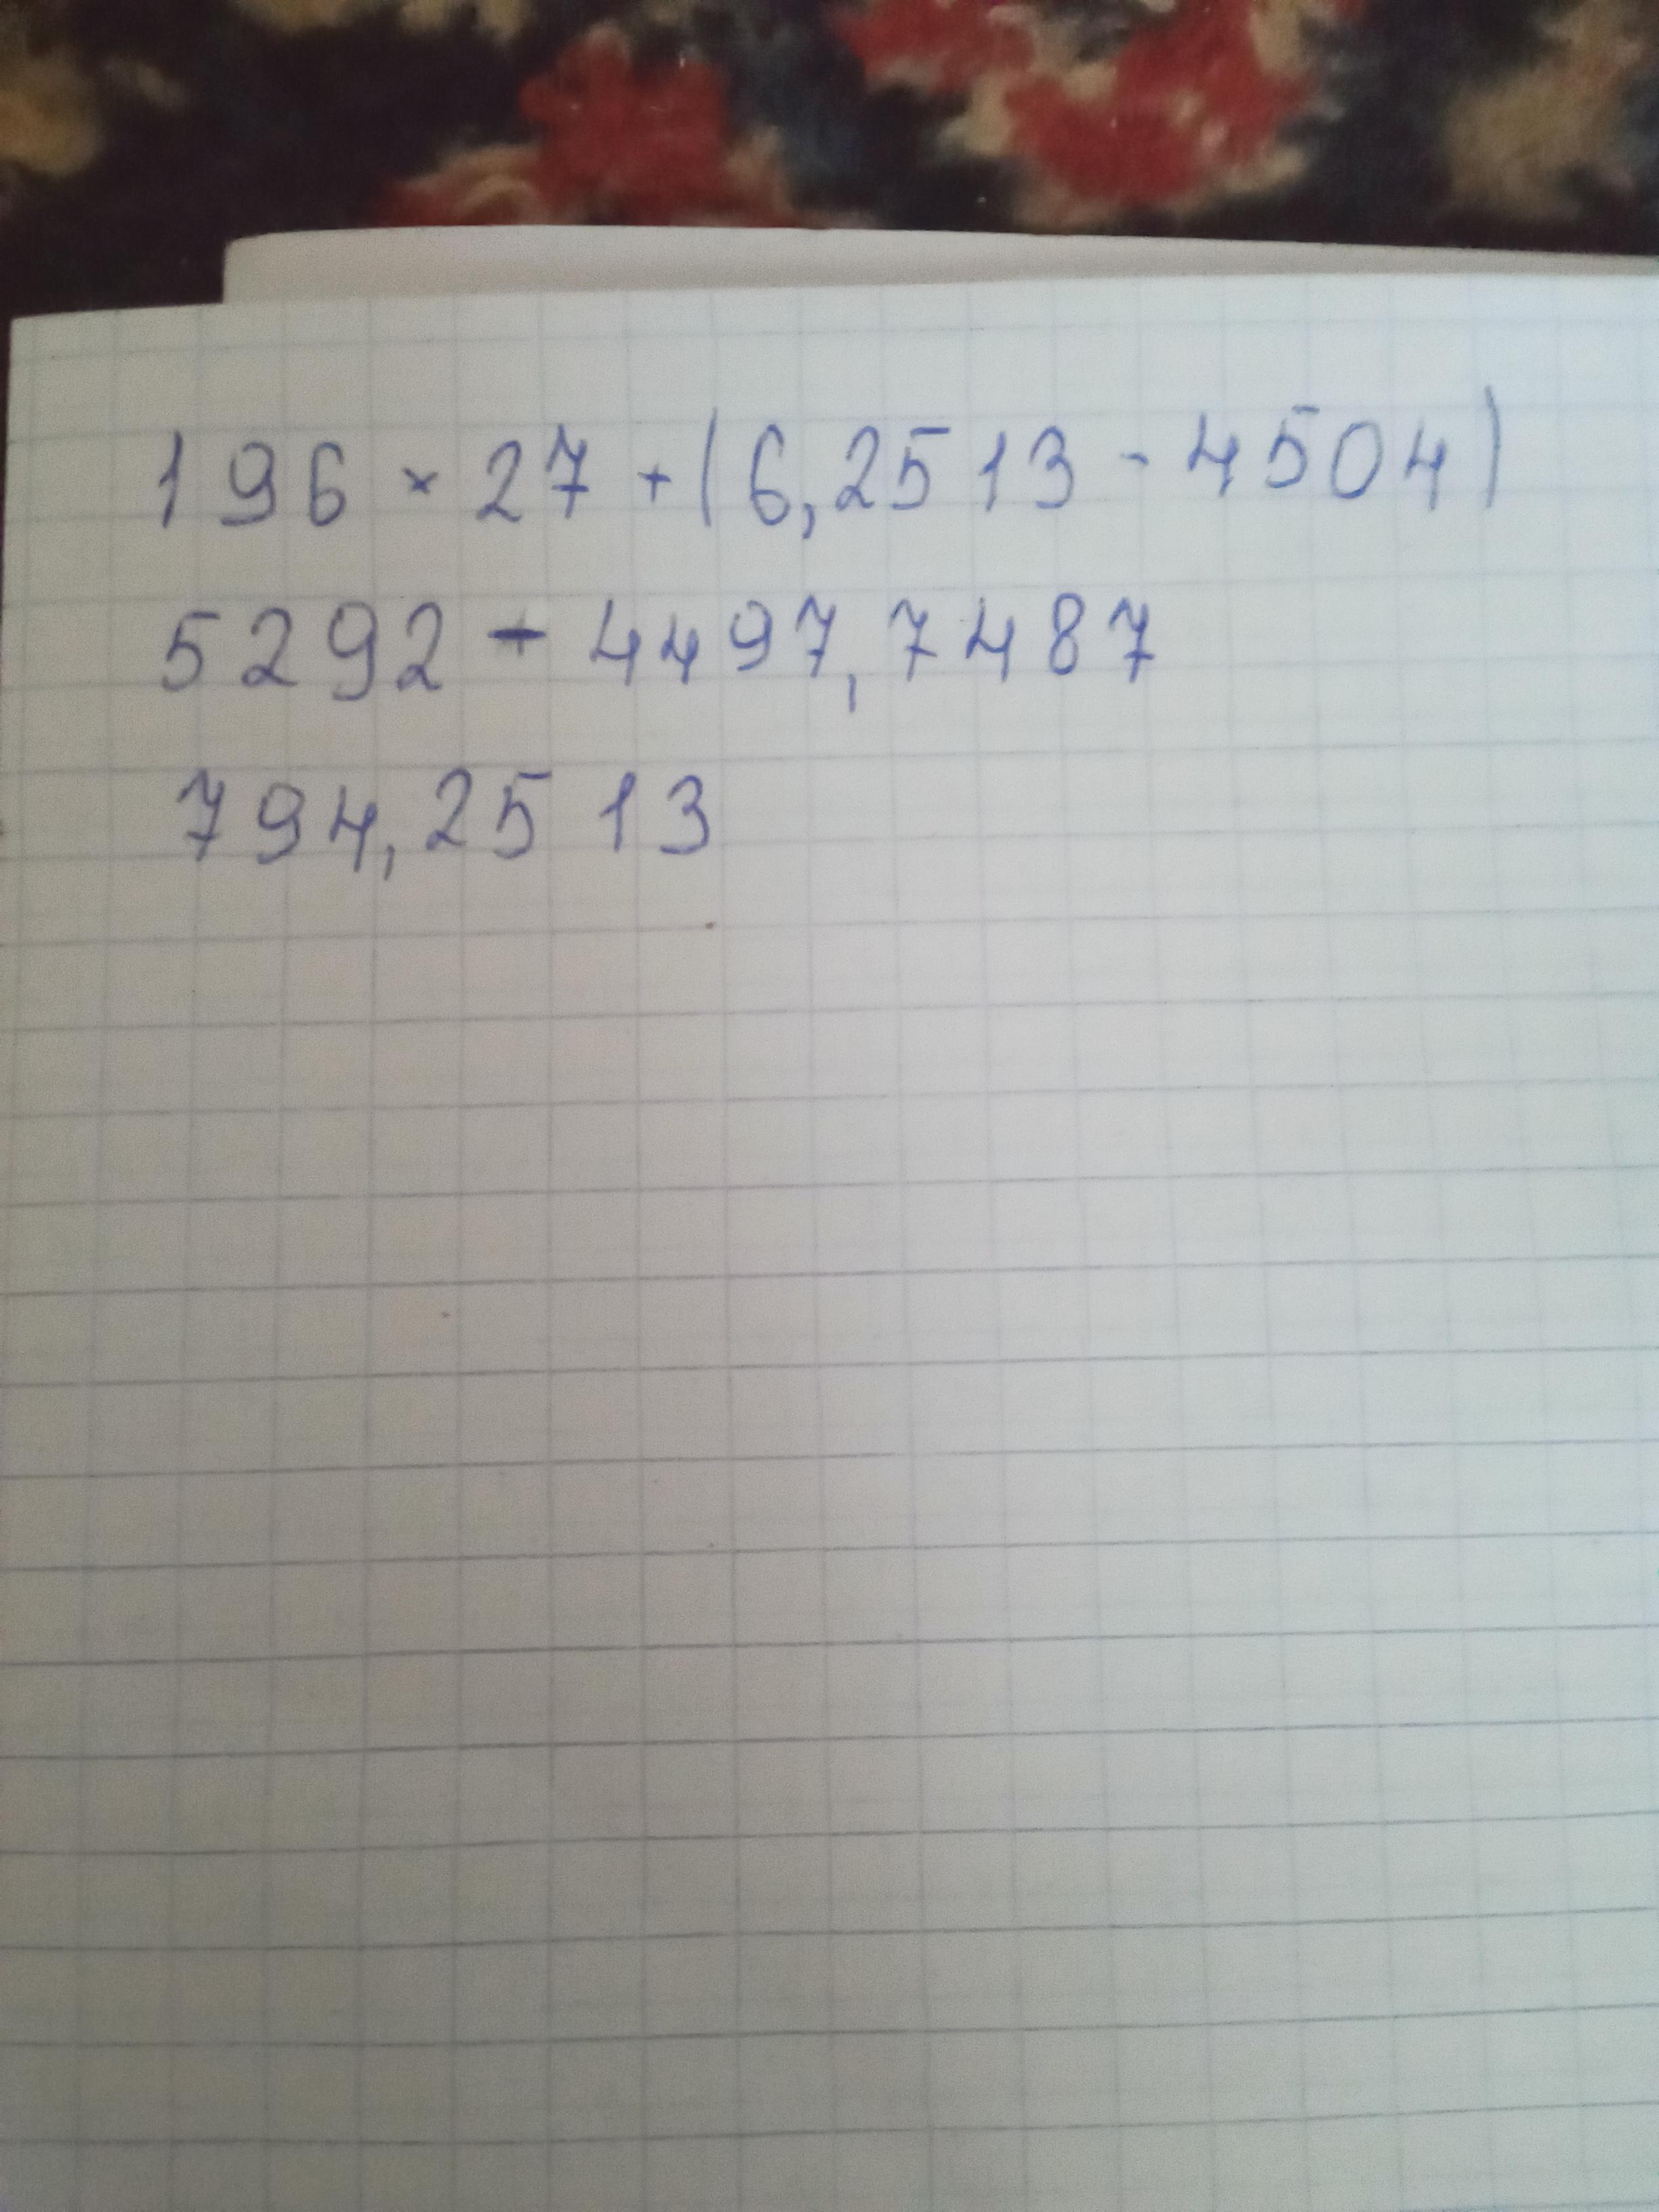 196 × 27 + (6,2513 - 4504)
5292 - 4497,7487
794,2513